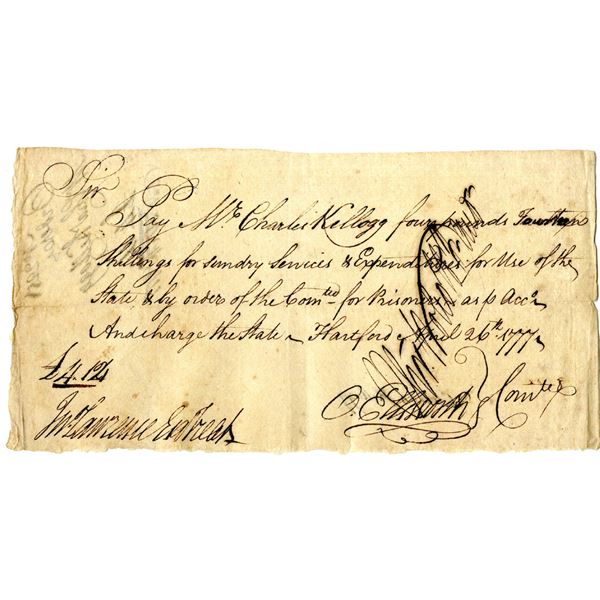 Sir
Pay Mr Charles Kellogg four pounds Fourteen
Shillings for sundry Services & Expenditures for Use of the
State & by order of the Comtee for Prisoners as p Acct
And charge the State Hartford April 26th 1777
£4.14
Jno Lawrence Esqr Treasr
O. Ellsworth Comtee